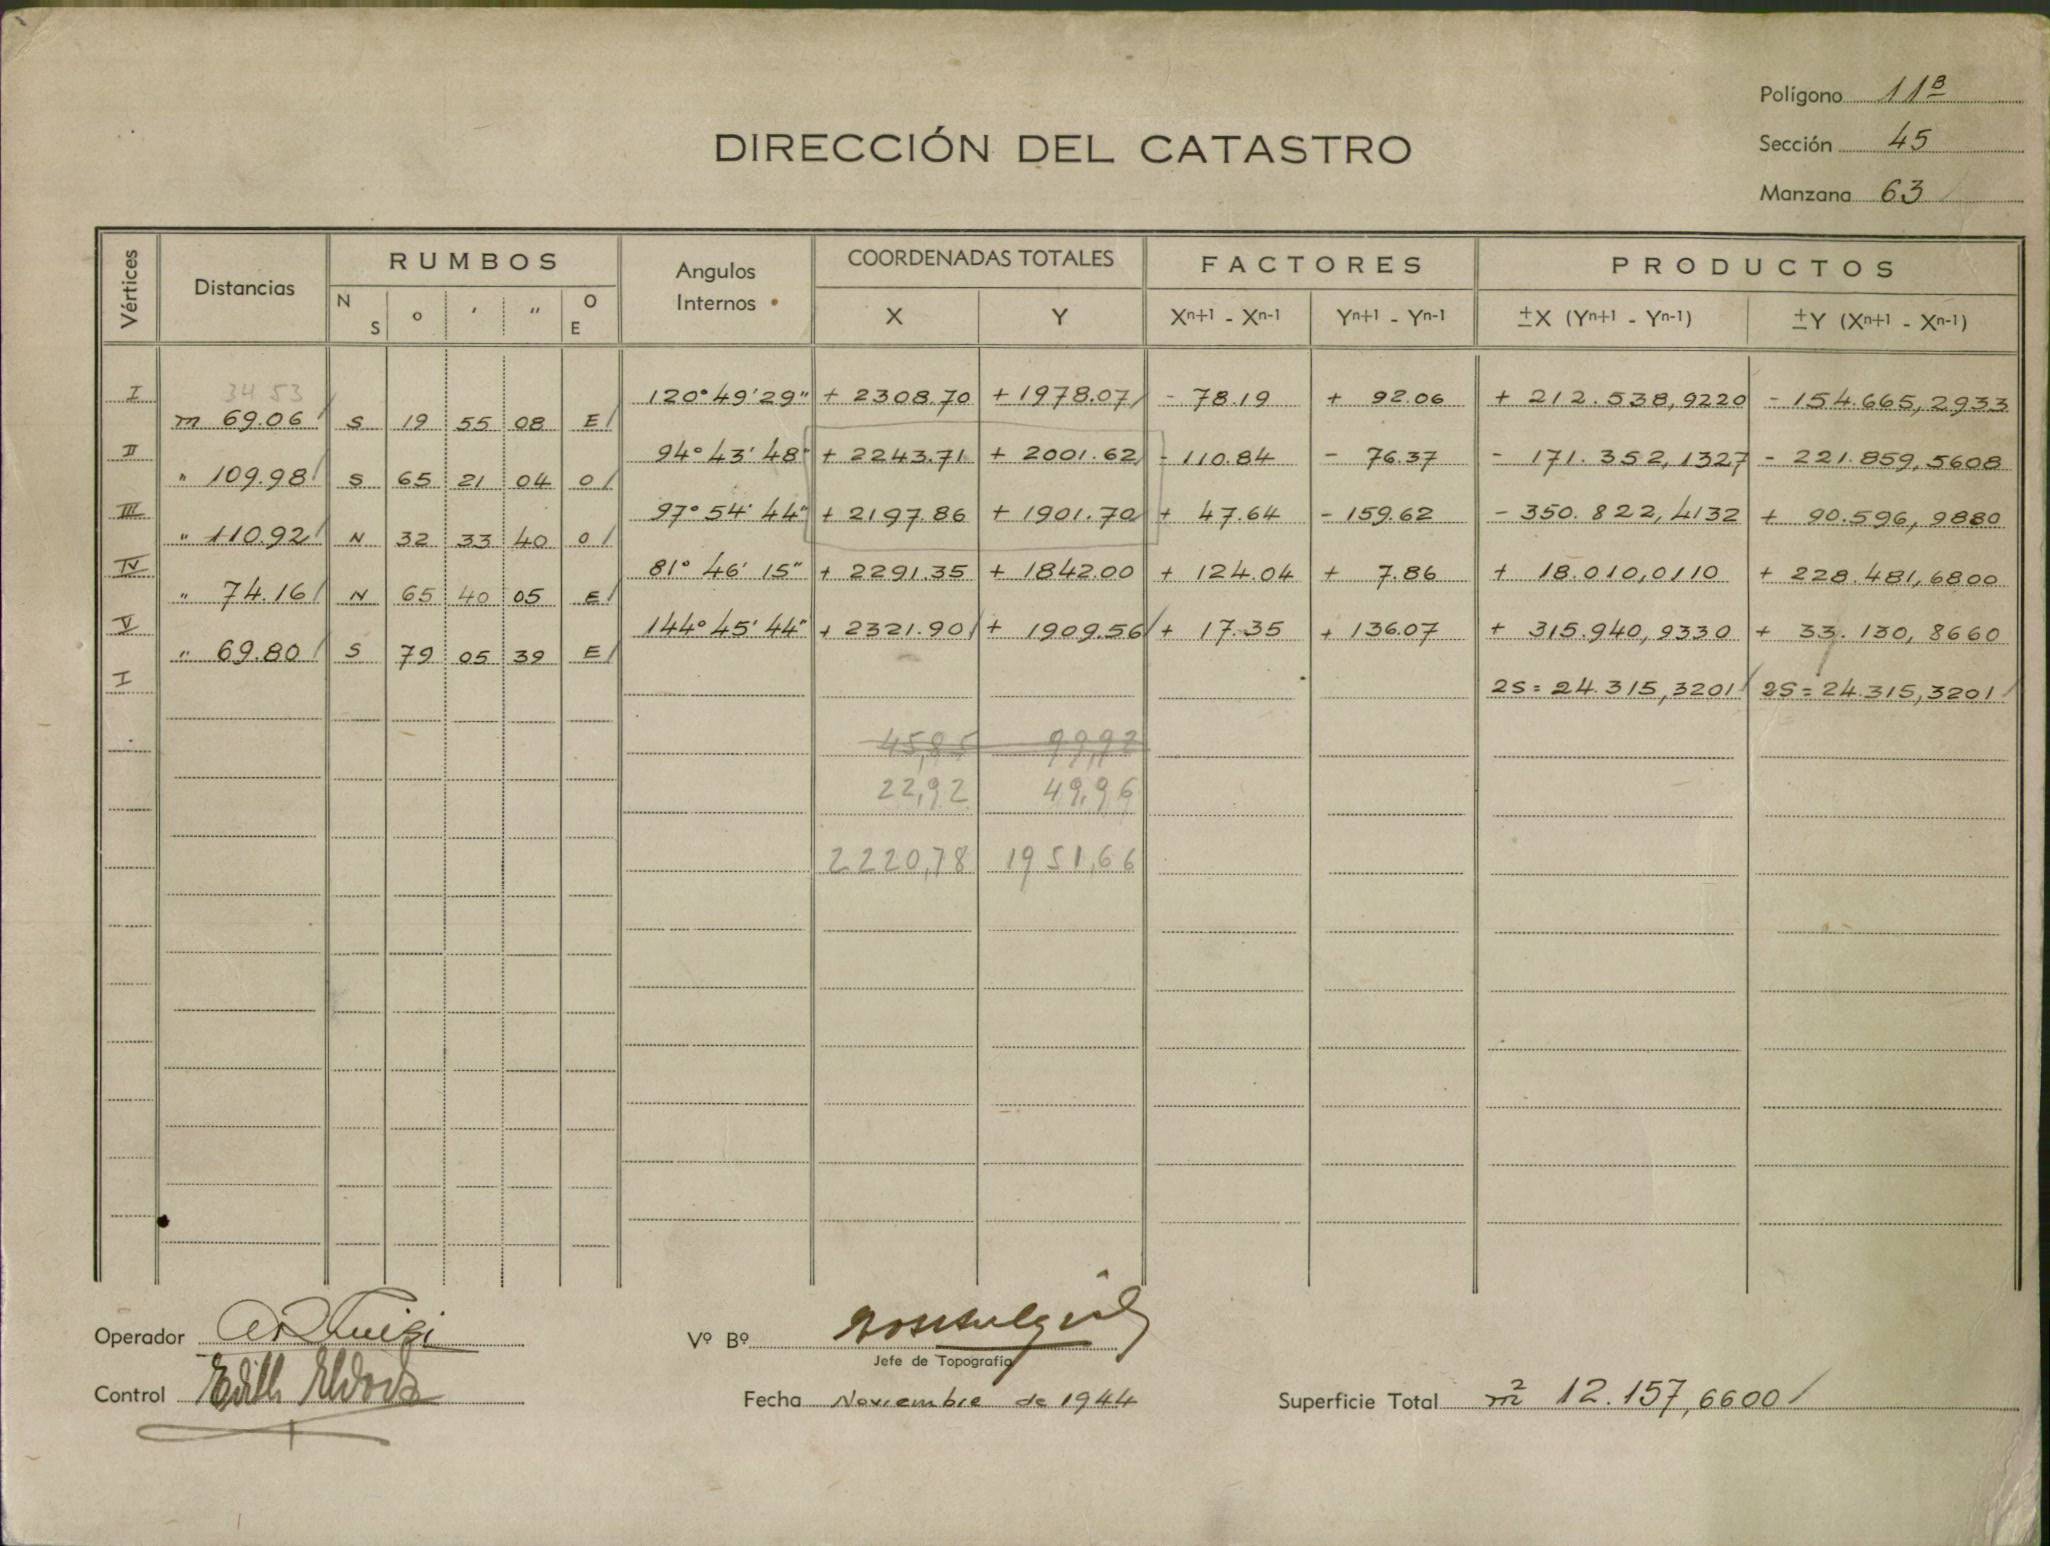 Polígono 11B
Sección 45
Manzana 63
DIRECCIÓN DEL CATASTRO
Vértices Distancias RUMBOS Angulos Internos COORDENADAS TOTALES FACTORES PRODUCTOS
N S o ' " O E X Y Xn+1 - Xn-1 Yn+1 - Yn-1 ±X (Yn+1 - Yn-1) ±Y (Xn+1 - Xn-1)
I 34 53 120° 49' 29" + 2308.70 + 1978.07 - 78.19 + 92.06 + 212.538,9220 - 154.665,2933
m 69.06 S 19 55 08 E
II 94° 43' 48" + 2243.71 + 2001.62 - 110.84 - 76.37 - 171.352,1327 - 221.859,5608
" 109.98 S 65 21 04 O
III 97° 54' 44" + 2197.86 + 1901.70 + 47.64 - 159.62 - 350.822,4132 + 90.596,9880
" 110.92 N 32 33 40 O
IV 81° 46' 15" + 2291.35 + 1842.00 + 124.04 + 7.86 + 18.010,0110 + 228.481,6800
" 74.16 N 65 40 05 E
V 144° 45' 44" + 2321.90 + 1909.56 + 17.35 + 136.07 + 315.940,9330 + 33.130,8660
" 69.80 S 79 05 39 E
I 2S = 24.315,3201 2S = 24.315,3201
45,85 99,92
22,92 49,96
2220,78 1951,66
Operador
Vº Bº
Jefe de Topografía
Control Edith
Fecha Noviembre de 1944
Superficie Total m2 12.157,6600